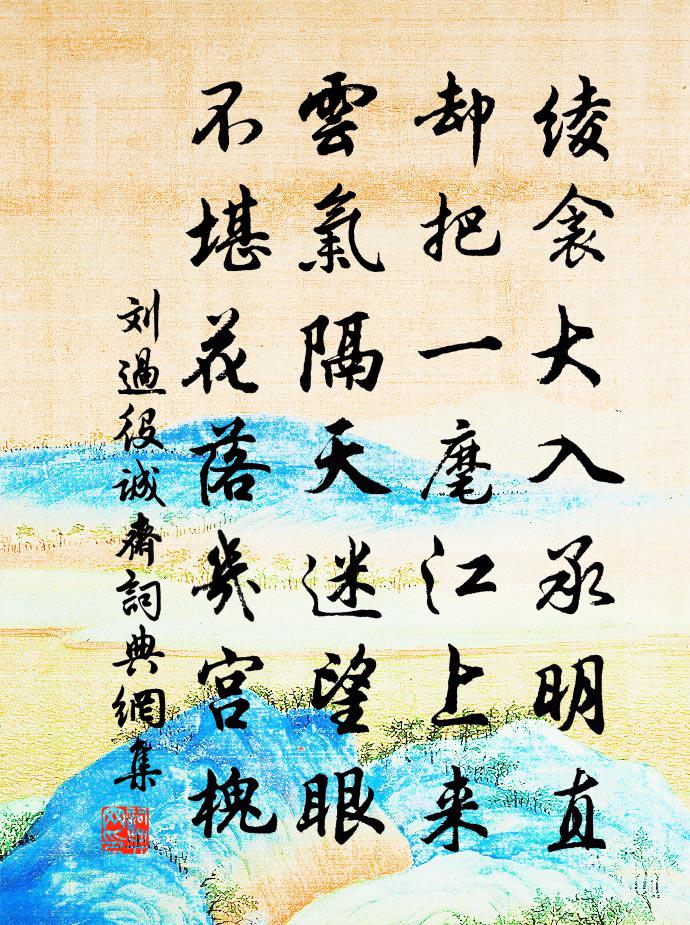 綾衾大入承明直
却把一麾江上来
雲氣隔天迷望眼
不堪花落幾宮槐
刘過役誠齋詞典網集